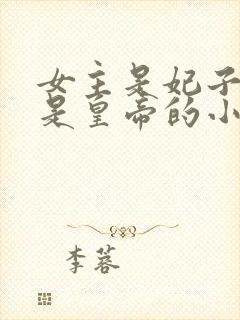 女主是妃子
是皇帝的小
李蓉